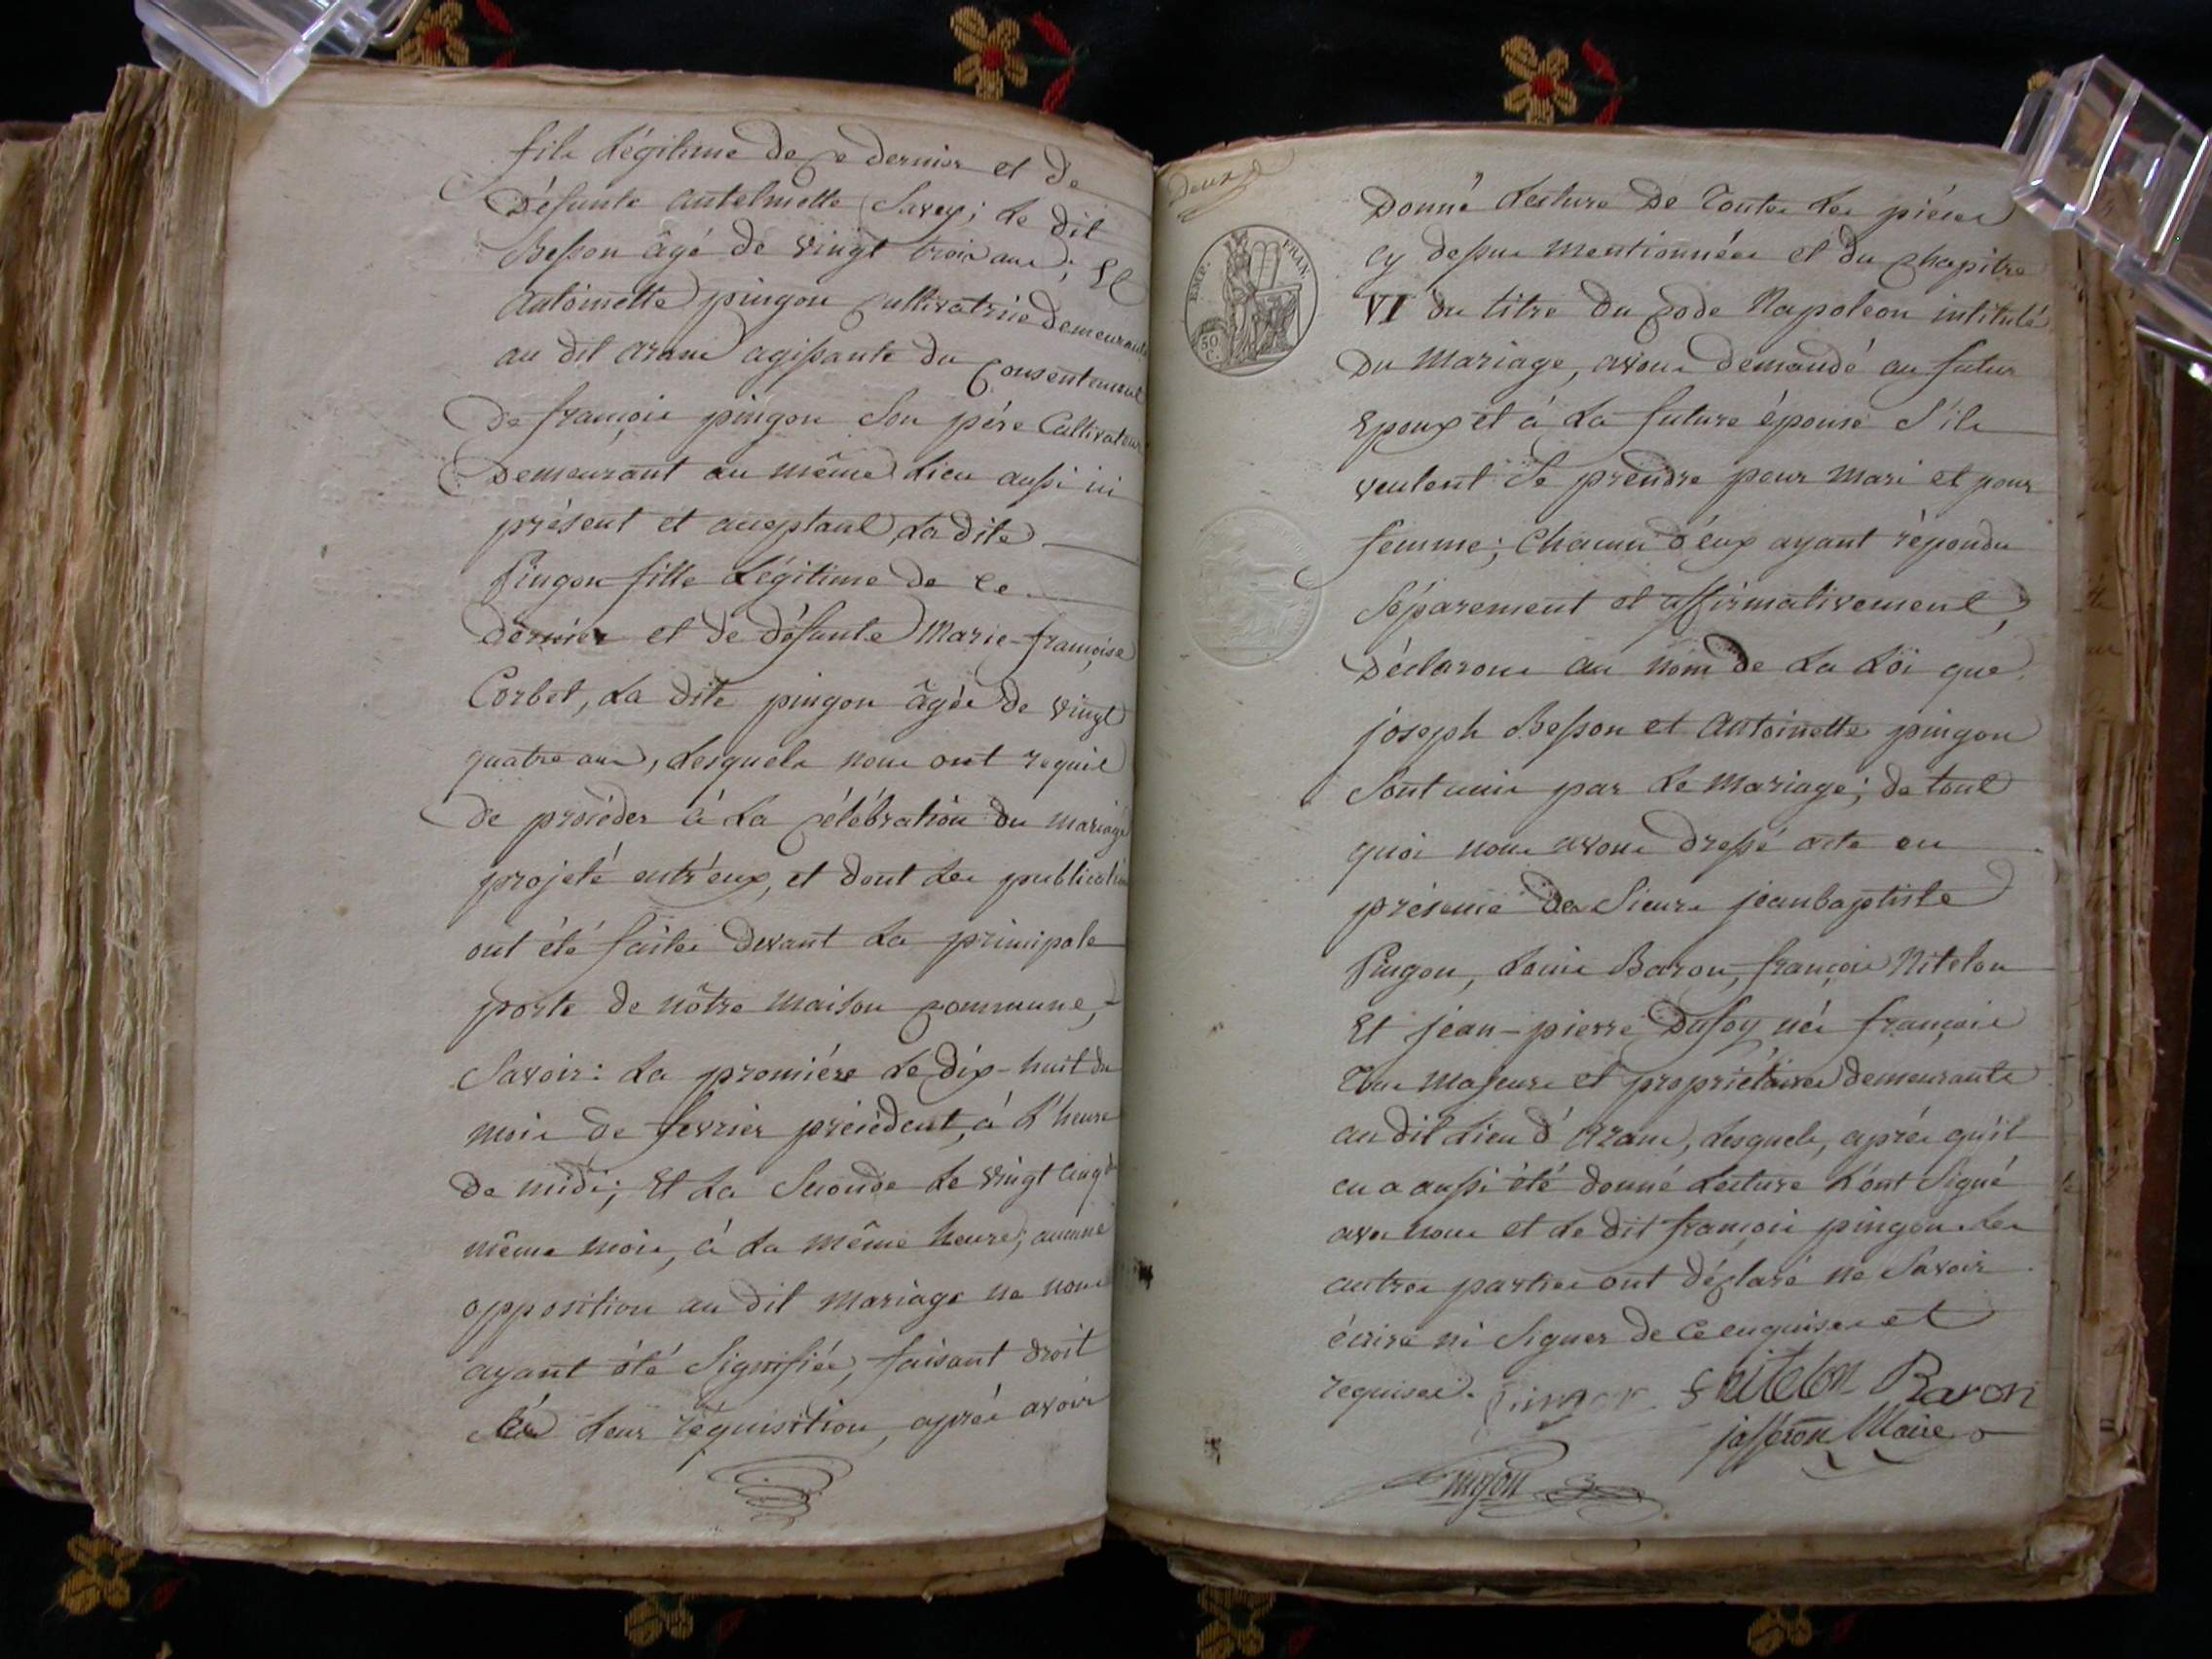 fils Légitime de ce dernier et de
Défunte antelmette Savey; Le dit
Besson âgé de vingt trois ans; Et
antoinette pingon cultivatrice demeurante
au dit arans agissante du consentement
de françois pingon Son père Cultivateur
Demeurant au même Lieu aussi ici
présent et acceptant, La dite
Pingon fille Légitime de ce
dernier et de défunte Marie-françoise
Corbet, La dite pingon âgée de vingt
quatre ans, Lesquels nous ont requis
de procéder à La célébration du mariage
projeté entr'eux, et dont Les publications
ont été faites devant La principale
porte de nôtre maison commune,
Savoir: La première Le dix-huit du
mois de fevrier précédent, à L'heure
de midi; Et La Seconde Le vingt cinq du
même mois, à La même heure; aucune
opposition au dit mariage ne nous
ayant été Signifiée, faisant droit
à Leur réquisition, après avoir
Deux
Donné Lecture De Toutes Les pièces
cy dessus mentionnées et du chapitre
EMP. FRAN.
VI du titre du code Napoleon intitulé
50 C.
Du Mariage, avons demandé au futur
Epoux et à La future épouse S'ils
veulent Se prendre pour mari et pour
femme; Chacun d'eux ayant répondu
Séparement et affirmativement,
Déclarons au nom de La Loi que
joseph Besson et Antoinette pingon
Sont unis par Le mariage; de tout
quoi nous avons dressé acte en
présence des Sieurs jeanbaptiste
Pingon, Louis Baron, françois Nitelon
Et jean-pierre Dufoy nés français
Tous majeurs et propriétaires demeurants
au dit Lieu d'Arans, Lesquels, après qu'il
en a aussi été donné Lecture L'ont Signé
avec nous et Le dit françois pingon. Les
autres parties ont déclaré ne Savoir
écrire ni Signer de ce enquises et
requises. f nitelon Baron
jasseron Maire